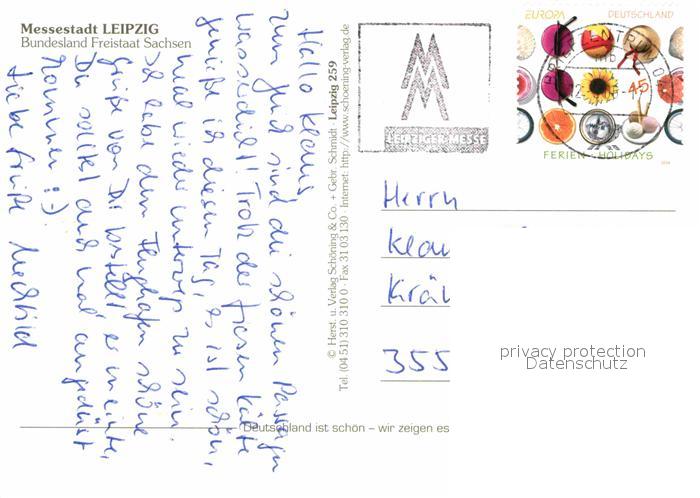 Messestadt LEIPZIG
Bundesland Freistaat Sachsen
Hallo Klaus
zum Glück sind die schönen Passagen
wasserdicht! Trotz der
genieße ich diesen Tag, es ist schön,
mal wieder unterwegs zu sein.
Ich habe dem Flughafen schöne
Grüße von Dir bestellt, er meinte,
Du sollst auch mal
kommen :-)
Liebe Grüße Mechtild
© Herst. u. Verlag Schöning & Co. + Gebr. Schmidt · Leipzig 259
Tel. (04 51) 310 310 0 · Fax 31 03 130 · Internet: http://www.schoening-verlag.de
LEIPZIGER MESSE
EUROPA DEUTSCHLAND
BRIEFZENTRUM
45
FERIEN - HOLIDAYS
2004
Herrn
Klau
Kräl
355
privacy protection
Datenschutz
Deutschland ist schön – wir zeigen es